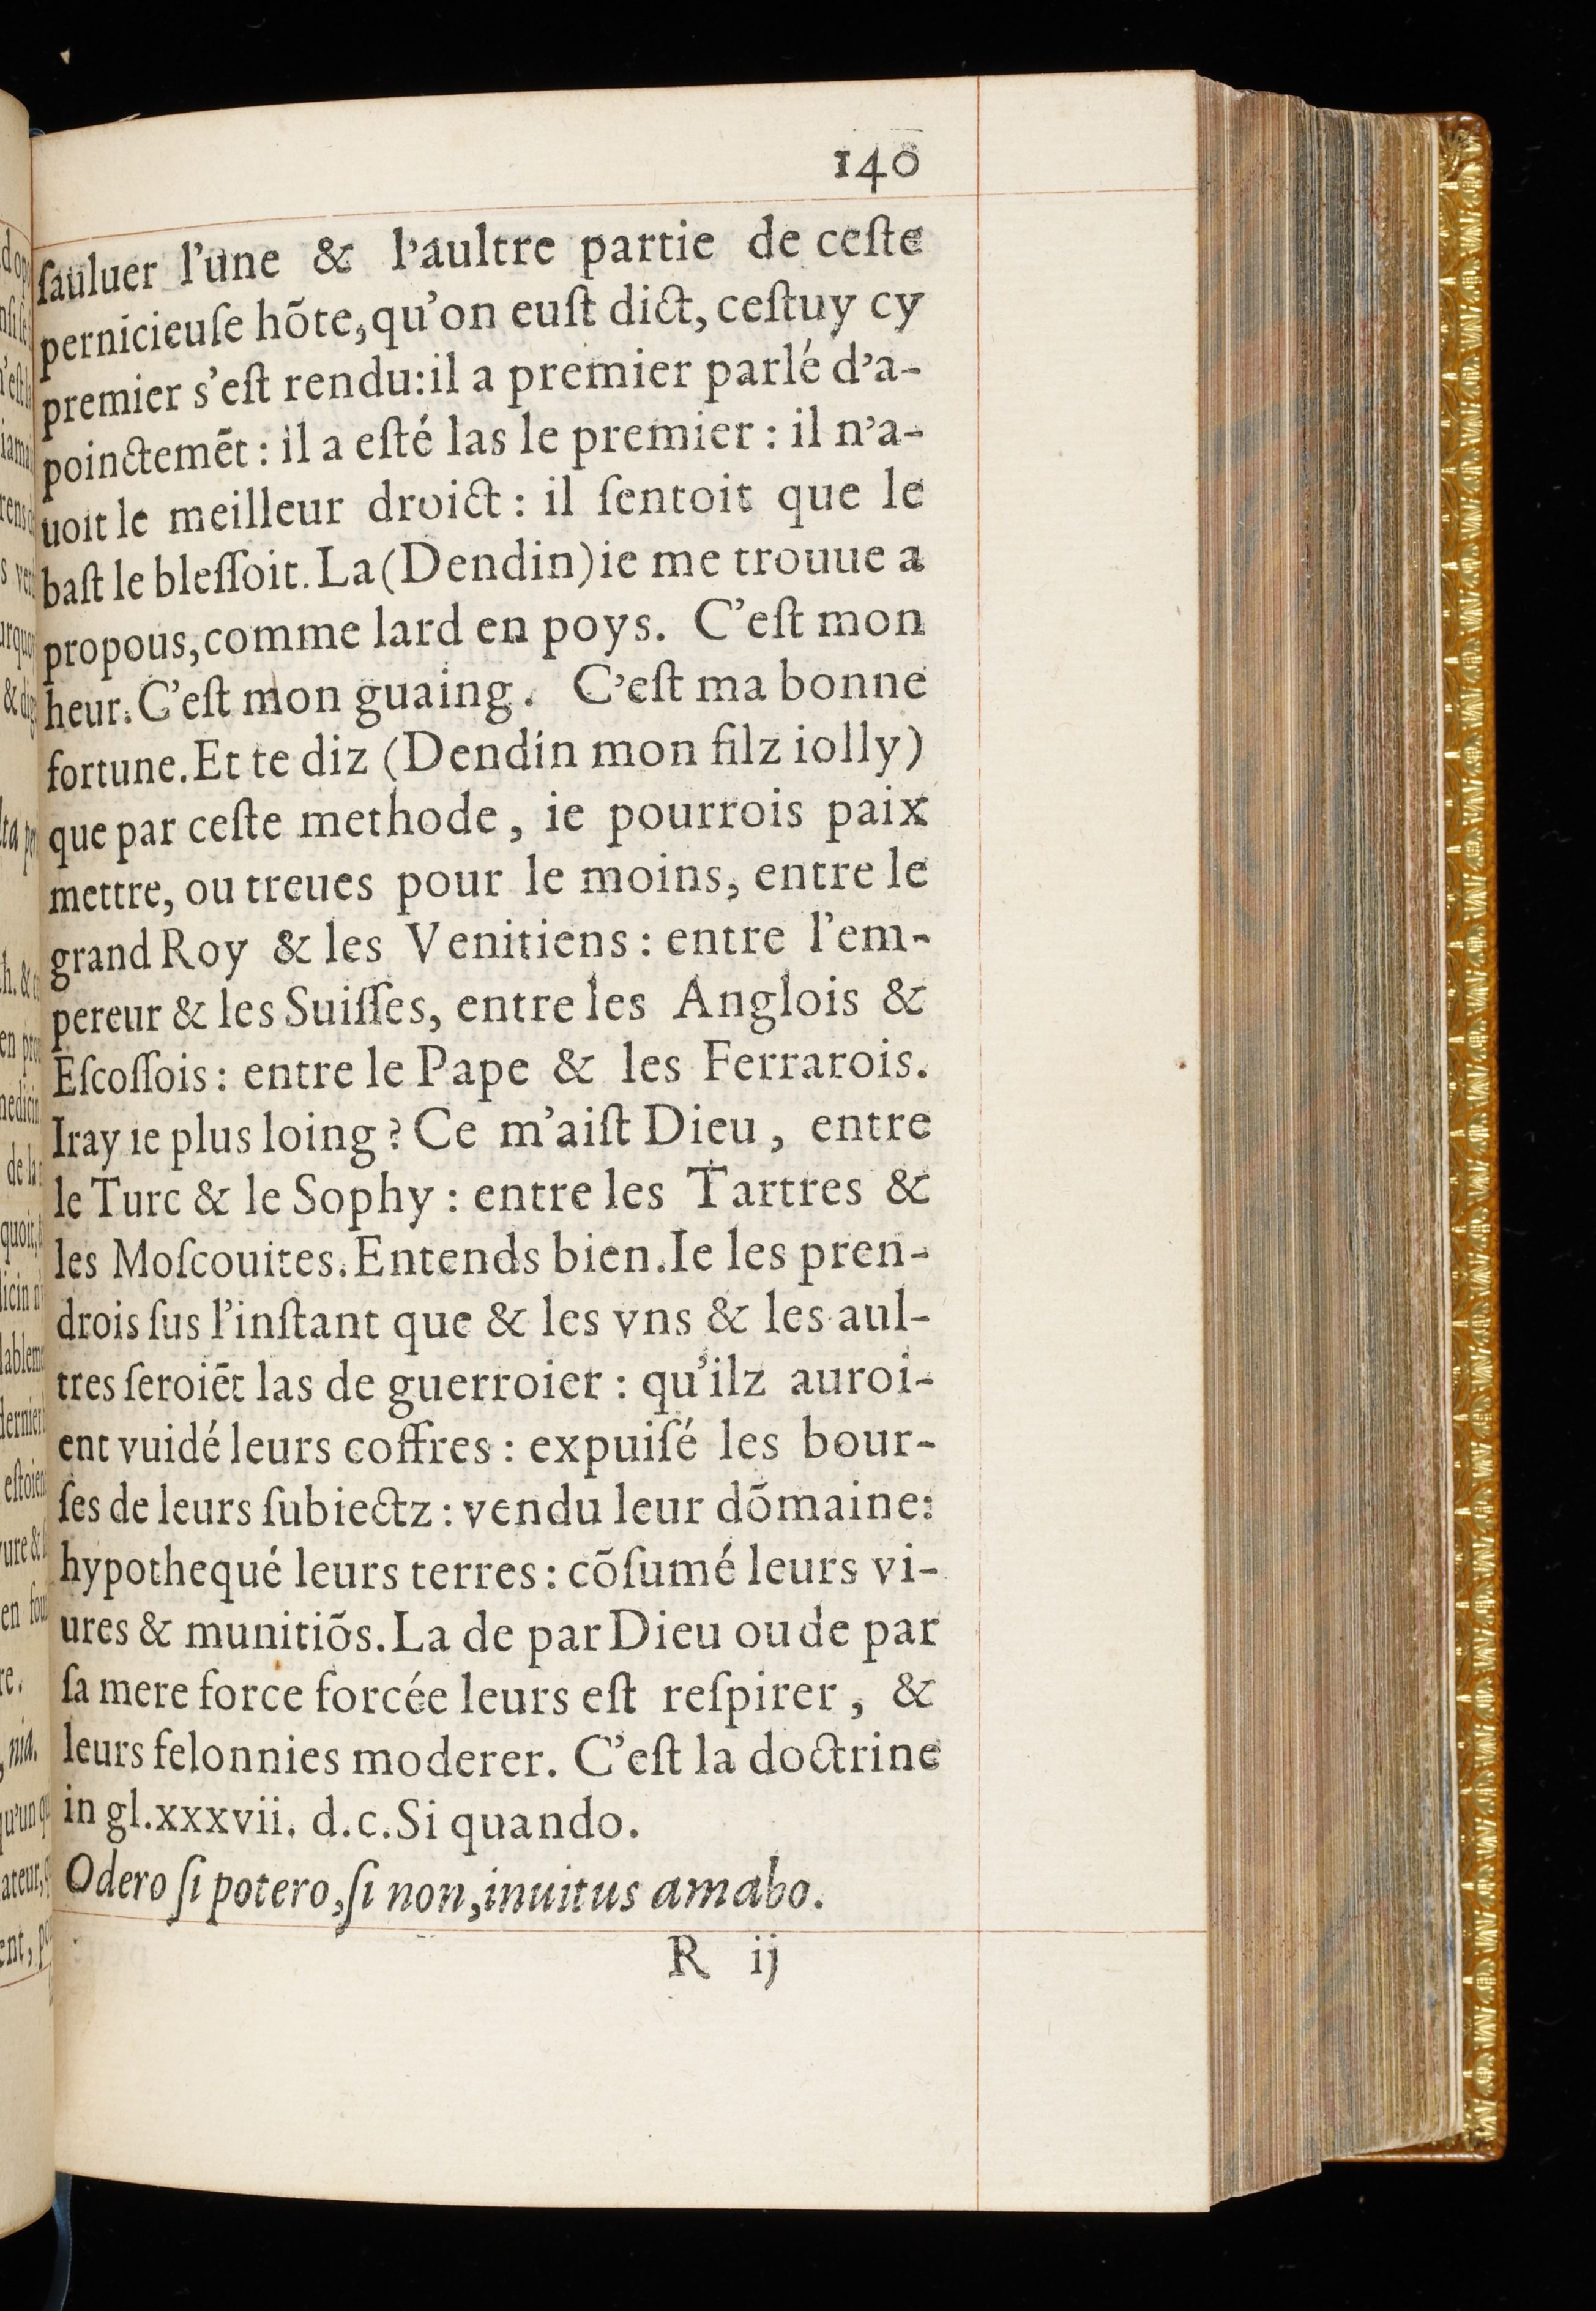 140
ſauluer l'une & l'aultre partie de ceſte
pernicieuſe hõte, qu'on euſt dict, ceſtuy cy
premier s'eſt rendu: il a premier parlé d'a-
poinctemẽt : il a eſté las le premier : il n'a-
uoit le meilleur droict : il ſentoit que le
baſt le bleſſoit. La (Dendin) ie me trouue a
propous, comme lard en poys. C'eſt mon
heur. C'eſt mon guaing. C'eſt ma bonne
fortune. Et te diz (Dendin mon filz iolly)
que par ceſte methode, ie pourrois paix
mettre, ou treues pour le moins, entre le
grand Roy & les Venitiens : entre l'em-
pereur & les Suiſſes, entre les Anglois &
Eſcoſſois : entre le Pape & les Ferrarois.
Iray ie plus loing ? Ce m'aiſt Dieu, entre
le Turc & le Sophy : entre les Tartres &
les Moſcouites. Entends bien. Ie les pren-
drois ſus l'inſtant que & les vns & les aul-
tres ſeroiẽt las de guerroier : qu'ilz auroi-
ent vuidé leurs coffres : expuiſé les bour-
ſes de leurs ſubiectz : vendu leur dõmaine:
hypothequé leurs terres : cõſumé leurs vi-
ures & munitiõs. La de par Dieu ou de par
ſa mere force forcée leurs eſt reſpirer, &
leurs felonnies moderer. C'eſt la doctrine
in gl. xxxvii. d. c. Si quando.
Odero ſi potero, ſi non, inuitus amabo.
R ij